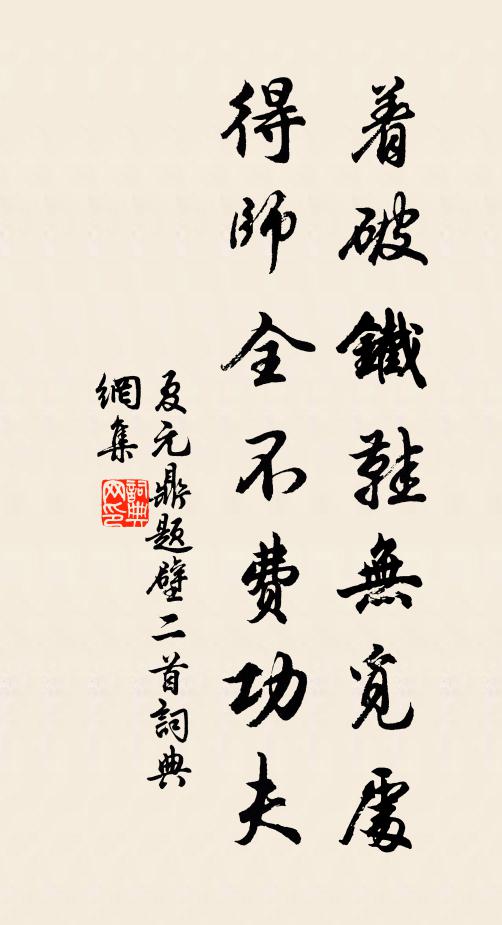 着破鐵鞋無覓處
得師全不費功夫
夏元鼎題壁二首詞典
網集
詞典網印